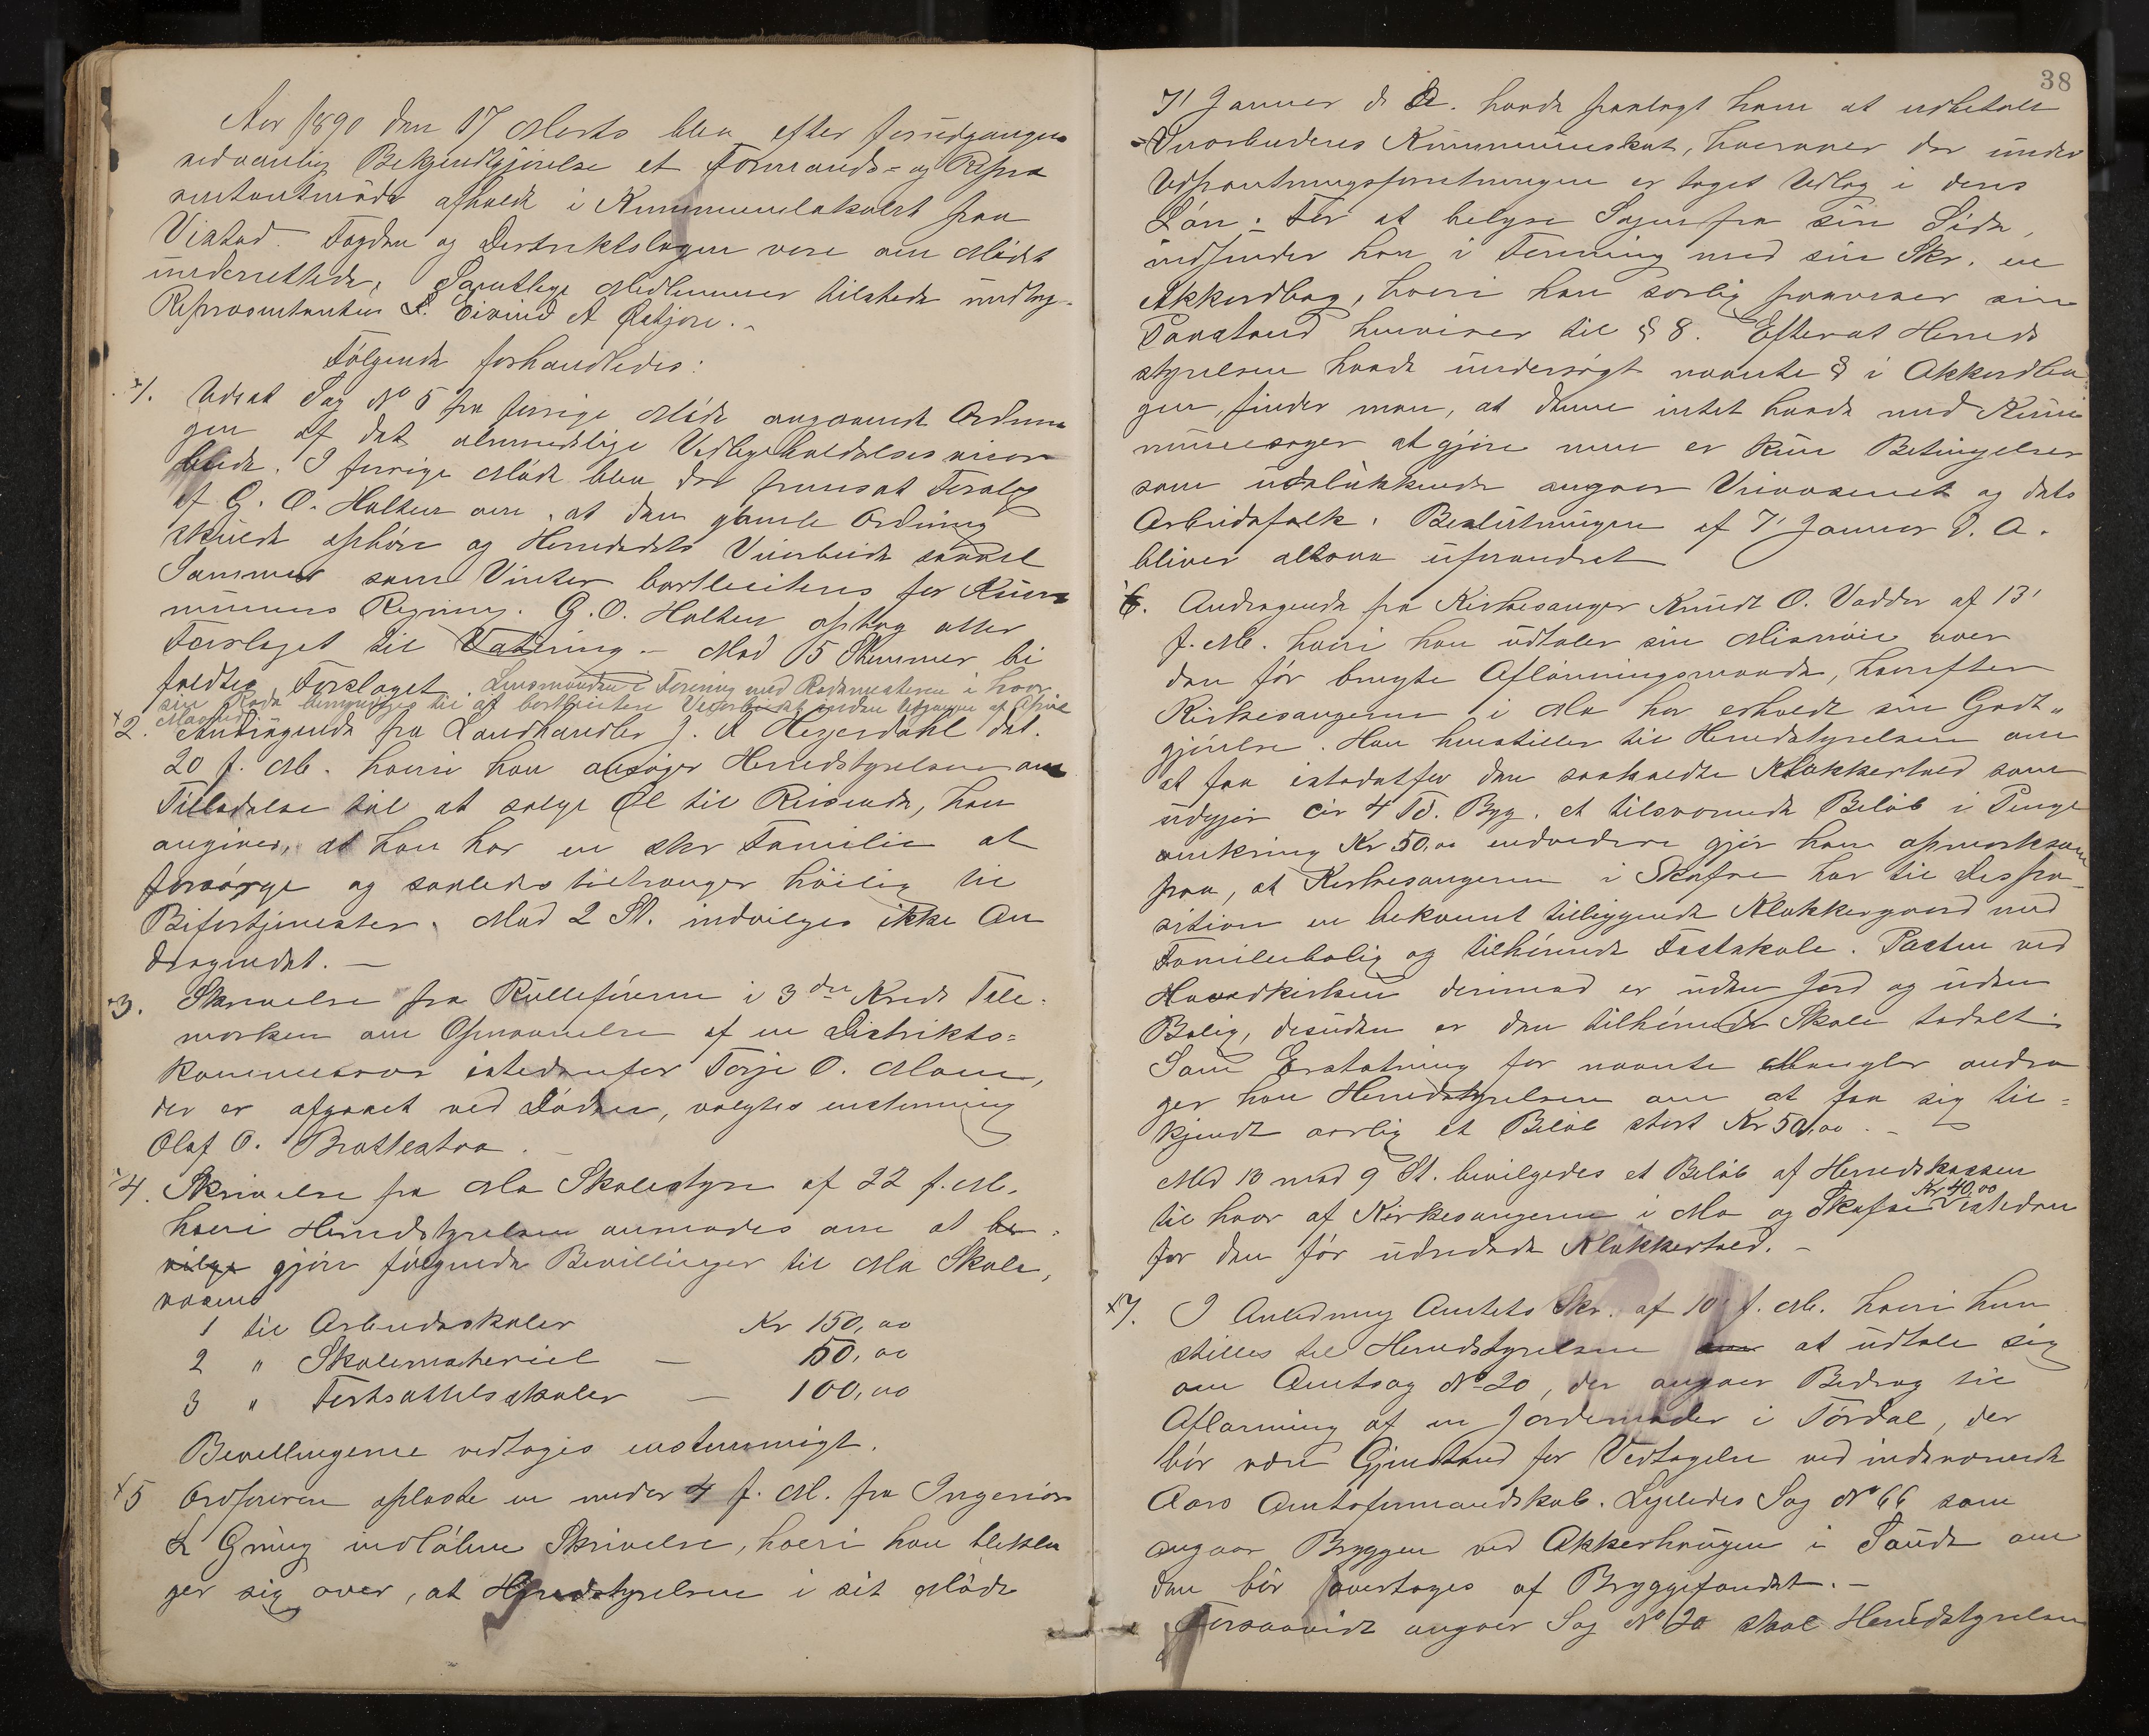 Aar 1890 den 17 Marts blev efter forudgangen
sedvanlig Bekjendtgjørelse et Formands- og Repræ
sentantmøde afholdt i Kommunelokalet paa
Vistad. Fogden og Distriktslægen vare om Mødet
underrettede. Samtlige Medlemmer tilstede undtag-
Repræsentanten S. Eivind A
Følgende forhandledes:
1. Udsat Sag No 5 fra forrige Møde angaaende Ordnin
gen af det almindelige Vedligeholdelses
beide. I forrige Møde blev der fremsat Forslag
af G. O. Holten om, at den gamle Ordning
skulde ophøre og Herredets Veiarbeide saavel
Sommer som Vinter bortliciteres for Kom
munens Regning. G. O. Holten optog atter
Forslaget til Votering. Mod 5 Stemmer bi
faldtes Forslaget. Lensmanden i Forening med Rodemesteren i hver
sin Rode bemyndiges til at bortlicitere Veiarbeidet inden Udgangen af April
Maaned
2. Andragende fra Landhandler J. A Hegjerdahl dat.
20 f. M. hvori han ansøger Herredstyrelsen om
Tilladelse til at sælge Øl til Reisende, han
angiver, at han har en stor Familie at
forsørge og saaledes tiltrænger høilig til
Bifortjenester. Mod 2 St. indvilges ikke An
dragendet. —
3. Skrivelse fra Rulleføreren i 3die Kreds Tele-
marken om Opnævnelse af en Distrikts=
kommissær istedenfor Torje O. Moen,
der er afgaaet ved Døden, valgtes enstemmig
Olaf O. Brattestaa.
4. Skrivelse fra Mo Skolestyre af 22 f. M.
hvori Herredstyrelsen anmodes om at be-
vilge gjøre følgende Bevillinger til Mo Skole,
væsens
1 til Arbeidsskoler Kr 150,00
2 " Skolemateriel — 50,00
3 " Fortsættelsesskoler — 100,00
Bevillingerne vedtoges enstemmigt.
5 Ordføreren oplæste en under 4 f. M. fra Ingeniør
L Gring indløben Skrivelse, hvori han bekla
ger sig over, at Herredstyrelsen i sit Møde
38
7' Januar d. A. havde paalagt ham at udbetale
Veiarbeideres Kommuneskat, hvorover der under
Udpantningsforretningen er taget Udlæg i deres
Løn. For at belyse Sagen fra sin Side,
indsender han i Forening med sin Skr. en
Akkordbog, hvori han særlig paaviser sin
Paastand henviser til § 8. Efterat Herreds
styrelsen havde undersøgt nævnte § i Akkordbo
gen, finder man, at denne intet havde med Kom
munesager at gjøre men er kun Betingelser
som udelukkende angaar Veivæsenet og dets
Arbeidsfolk. Beslutningen af 7' Januar d. A.
bliver altsaa uforandret
6. Andragende fra Kirkesanger Knudt O. Vadder af 13'
f. M. hvori han udtaler sin Misnøie over
den før brugte Aflønningsmaade, hvorefter
Kirkesangeren i Mo har erholdt sin Godt„
gjørelse. Han henstiller til Herredstyrelsen om
at faa istedetfor den saakaldte Klokkertold som
udgjør cir 4 Td. Byg. et tilsvarende Beløb i Penge
omkring Kr 50,00 endvidere gjør han opmærksom
paa, at Kirkesangeren i Skafse har til Dispo-
sition en bekvemt tilliggende Klokkergaard med
Familiebolig og tilhørende Fastskole. Posten ved
Hovedkirken derimod er uden Jord og uden
Bolig, desuden er den tilhørende Skole todelt.
Som Erstatning for nævnte Mangler andra
ger han Herredstyrelsen om at faa sig til=
kjendt aarlig et Beløb stort Kr 50,00. —
Med 13 mod 9 St. bevilgedes et Beløb af Herredskassen
Kr 40,00
til hver af Kirkesangerne i Mo og Skafse istedenn
for den før udredede Klokkertold. —
7. I Anledning Amtets Skr. af 10' f. M. hvori hen
stilles til Herredstyrelsen om at udtale sig
om Amtssag No 20, der angaar Bidrag til
Aflønning af en Jordemoder i Tørdal, der
bør være Gjenstand for Vedtagelse ved indeværende
Aars Amtsformandskab. Ligeledes Sag No 66 som
angaar Bryggen ved Akkerhaugen i Saude om
den bør overtages af Bryggefondet. —
Forsaavidt angaar Sag No 20 skal Herredstyrelsen